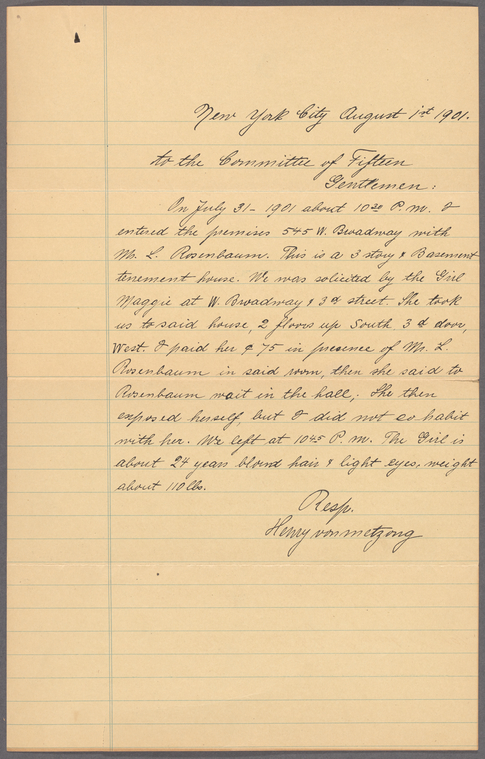 New York City August 1st 1901.
to the Committee of Fifteen
Gentlemen:
On July 31 - 1901 about 10 30 P.M. I
entered the premises 545 W. Broadway with
Mr. L. Rosenbaum. This is a 3 story & Basement
tenement house. We was solicited by the Girl
Maggie at W. Broadway & 3d street. She took
us to said house, 2 floors up South 3d door,
West. I paid her ¢ 75 in presence of Mr. L.
Rosenbaum in said room, then she said to
Rosenbaum wait in the hall; She then
exposed herself, but I did not co habit
with her. We left at 10 45 P.M. The Girl is
about 24 years blond hair & light eyes, weight
about 110 lbs.
Resp.
Henry